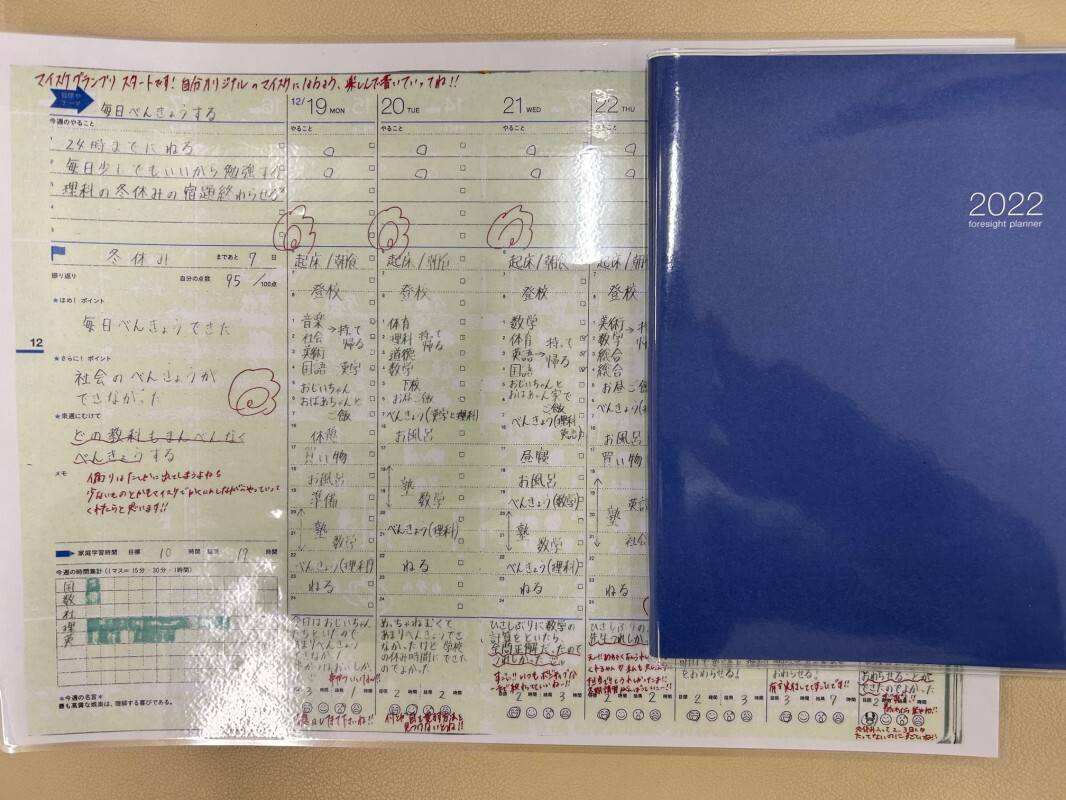 マイスケグランプリ スタートです! 自分オリジナルのマイスケにはやく、楽しんで書いていってね!!
目標や
テーマ
毎日べんきょうする
今週のやること
24時までにねる
毎日少しでもいいから勉強する
理科の冬休みの宿題終わらせる
冬休み まであと 7 日
振り返り 自分の点数 95 /100点
★ほめ! ポイント
毎日べんきょうできた
12
★さらに! ポイント
社会のべんきょうが
できなかった
★来週にむけて
どの教科もまんべんなく
べんきょうする
メモ
偏りはたしかに出てしまうよね
少ないものとかをマイスケでかくにんしながらやっていって
くれたらと思います!!
家庭学習時間 目標 10 時間 結果 19 時間
今週の時間集計 (1マス=15分・30分・1時間)
国
数
社
理
英
★今週の名言★
最も高貴な娯楽は、理解する喜びである。
12/19 MON
やること
起床/朝食
登校
音楽
社会 → 持って
美術 帰る
国語 英学
おじいちゃん
おばあちゃんと
ご飯
休憩
買い物
お風呂
準備
塾
数学
べんきょう(理科)
ねる
今日はおじいちゃん
目標 3 時間 結果 1 時間
20 TUE
やること
起床/朝食
登校
体育
理科 持って
道徳 帰る
数学
下校
お昼ご飯
べんきょう(英学と理科)
お風呂
塾
数学
べんきょう(理科)
ねる
めっちゃねむくて
あまりべんきょうでき
なかったけど学校
の休み時間にできた
のでよかった。
目標 2 時間 結果 2 時間
21 WED
やること
起床/朝食
登校
数学
体育 持って
英語 → 帰る
国語
おじいちゃんと
おばあーん家で
ご飯
べんきょう(理科
英語)
昼寝
お風呂
べんきょう(数学)
塾
数学
べんきょう(理科)
ねる
ひさしぶりに数学の
計算をといたら、
全問正解だったので
うれしかった
目標 2 時間 結果 3 時間
22 THU
やること
起床/朝
登校
美術
数学
総合
総合
お昼ご飯
べんきょう(
お風呂
買い物
英語
塾
社会
ねる
ひさしぶりの
目標 2 時間 結果 2 時間
をおわらせる。
目標 2 時間 結果 3 時間
目標 3 時間 結果 7 時間
おわらせることが
できたのでよかった。
2022
foresight planner